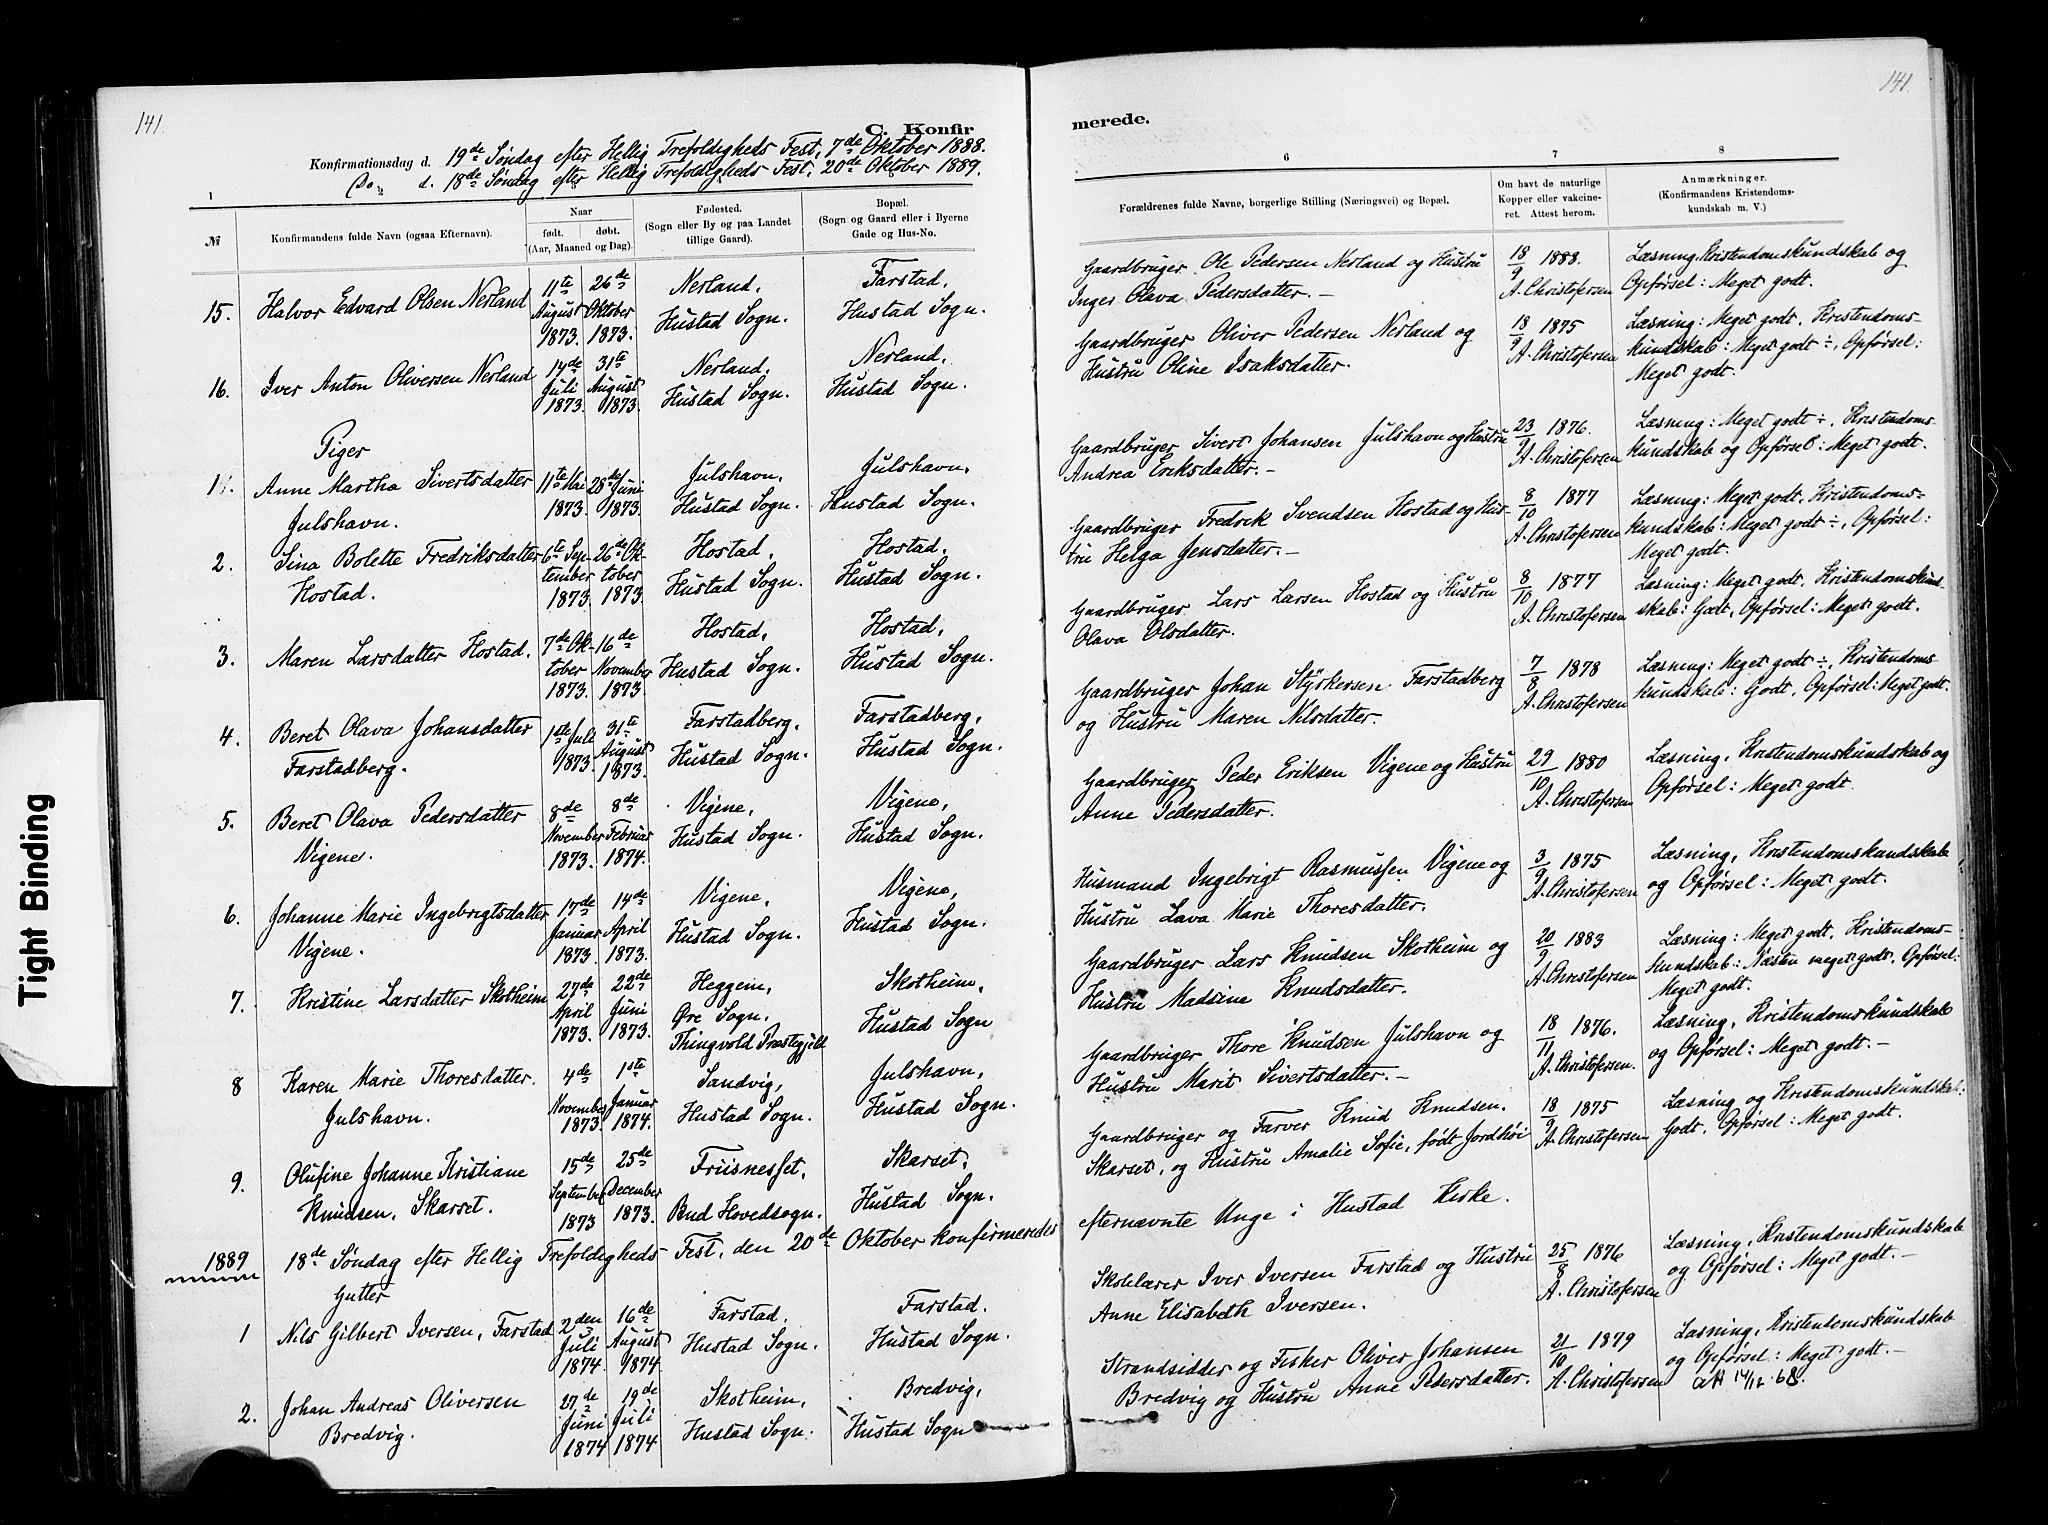 141.
C. Konfir
Konfirmationsdag d. 19de Søndag efter Hellig Trefoldigheds Fest, 7de Oktober 1888.
Do d. 18de Søndag efter Hellig Trefoldigheds Fest, 20de Oktober 1889.
1
№
Konfirmandens fulde Navn (ogsaa Efternavn).
Naar
født. døbt.
(Aar, Maaned og Dag).
Fødested.
(Sogn eller By og paa Landet
tillige Gaard).
Bopæl.
(Sogn og Gaard eller i Byerne
Gade og Hus-No.
15. Halvor Edvard Olsen Nerland 11te August 1873. 26de Oktober 1873. Nerland, Hustad Sogn. Farstad, Hustad Sogn.
16. Iver Anton Oliversen Nerland 14de Juli 1873. 31te August 1873. Nerland, Hustad Sogn. Nerland, Hustad Sogn.
Piger
1. Anne Martha Sivertsdatter Julshavn. 11te Mai 1873. 28de Juni 1873. Julshavn, Hustad Sogn. Julshavn, Hustad Sogn.
2. Sina Bolette Fredriksdatter Hostad. 6te September 1873. 26de Oktober 1873. Hostad, Hustad Sogn. Hostad, Hustad Sogn.
3. Maren Larsdatter Hostad. 7de Oktober 1873. 16de November 1873 Hostad, Hustad Sogn. Hostad, Hustad Sogn.
4. Beret Olava Johansdatter Farstadberg. 1ste Juli 1873. 31te August 1873. Farstadberg, Hustad Sogn. Farstadberg, Hustad Sogn.
5. Beret Olava Pedersdatter Vigene. 8de November 1873. 8de Februar 1874. Vigene, Hustad Sogn. Vigene, Hustad Sogn.
6. Johanne Marie Ingebrigtsdatter Vigene. 17de Januar 1873. 14de April 1873. Vigene, Hustad Sogn. Vigene, Hustad Sogn.
7. Kristine Larsdatter Skotheim 27de April 1873. 22de Juni 1873. Heggem, Øre Sogn, Thingvold Præstegjeld Skotheim, Hustad Sogn
8 Karen Marie Thoresdatter Julshavn. 4de November 1873. 1ste Januar 1874. Sandvig, Hustad Sogn. Julshavn, Hustad Sogn.
9. Olufine Johanne Kristiane Knudsen, Skarset. 15de September 1873 25de December 1873. Friisnesset, Bud Hovedsogn. Skarset, Hustad Sogn.
1889 18de Søndag efter Hellig Trefoldigheds Fest, den 20de Oktober konfirmeredes
Gutter
1 Nils Gilbert Iversen, Farstad 2den Juli 1874. 16de August 1874 Farstad. Hustad Sogn. Farstad. Hustad Sogn.
2. Johan Andreas Oliversen Bredvig. 27de Juni 1874 19de Juli 1874 Skotheim, Hustad Sogn. Bredvig, Hustad Sogn
Tight Binding
141.
merede.
6
7
8
Forældrenes fulde Navne, borgerlige Stilling (Næringsvei) og Bopæl.
Om havt de naturlige
Kopper eller vakcine-
ret. Attest herom.
Anmærkninger.
(Konfirmandens Kristendoms-
kundskab m. V.)
Gaardbruger Ole Pedersen Nerland og Hustru Inger Olava Pedersdatter. – 18/9 1888. A. Christofersen Læsning, Kristendomskundskab og Opførsel: Meget godt.
Gaardbruger Oliver Pedersen Nerland og Hustru Oline Isaksdatter. 18/9 1875 A. Christofersen Læsning: Meget godt, Kristendomskundskab: Meget godt ÷, Opførsel: Meget godt.
Gaardbruger Sivert Johansen Julshavn og Hustru Andrea Eriksdatter. – 23/9 1876. A. Christofersen Læsning: Meget godt ÷, Kristendomskundskab og Opførsel: Meget godt.
Gaardbruger Fredrik Svendsen Hostad og Hustru Helga Jensdatter. – 8/10 1877 A. Christofersen Læsning: Meget godt, Kristendomskundskab: Meget godt ÷, Opførsel: Meget godt.
Gaardbruger Lars Larsen Hostad og Hustru Olava Olsdatter. 8/10 1877 A. Christofersen Læsning: Meget godt, Kristendomskundskab: Godt, Opførsel: Meget godt.
Gaardbruger Johan Styrkersen Farstadberg og Hustru Maren Nilsdatter. 7/8 1878 A. Christofersen Læsning: Meget godt ÷, Kristendomskundskab: Godt, Opførsel: Meget godt.
Gaardbruger Peder Eriksen Vigene og Hustru Anne Pedersdatter. 29/10 1880 A. Christofersen Læsning, Kristendomskundskab og Opførsel: Meget godt.
Husmand Ingebrigt Rasmussen Vigene og Hustru Lava Marie Thoresdatter. 3/9 1875 A. Christofersen Læsning, Kristendomskundskab og Opførsel: Meget godt.
Gaardbruger Lars Knudsen Skotheim og Hustru Madsine Knudsdatter. 20/9 1883 A. Christofersen Læsning: Meget godt, Kristendomskundskab: Næsten meget godt, Opførsel: Meget godt.
Gaardbruger Thore Knudsen Julshavn og Hustru Marit Sivertsdatter. – 18/11 1876. A. Christofersen. Læsning, Kristendomskundskab og Opførsel: Meget godt. –
Gaardbruger og Farver Knud Knudsen Skarset, og Hustru Amalie Sofie, født Jordhøi 18/9 1875 A. Christofersen Læsning og Kristendomskundskab: Godt, Opførsel: Meget godt.
efternævnte Unge i Hustad Kirke.
Skolelærer Iver Iversen Farstad og Hustru Anne Elisabeth Iversen. 25/8 1876 A. Christofersen Læsning, Kristendomskundskab og Opførsel: Meget godt. –
Strandsidder og Fisker Oliver Johansen Bredvig og Hustru Anne Pedersdatter. 21/10 1879 A. Christofersen Læsning, Kristendomskundskab og Opførsel: Meget godt. –